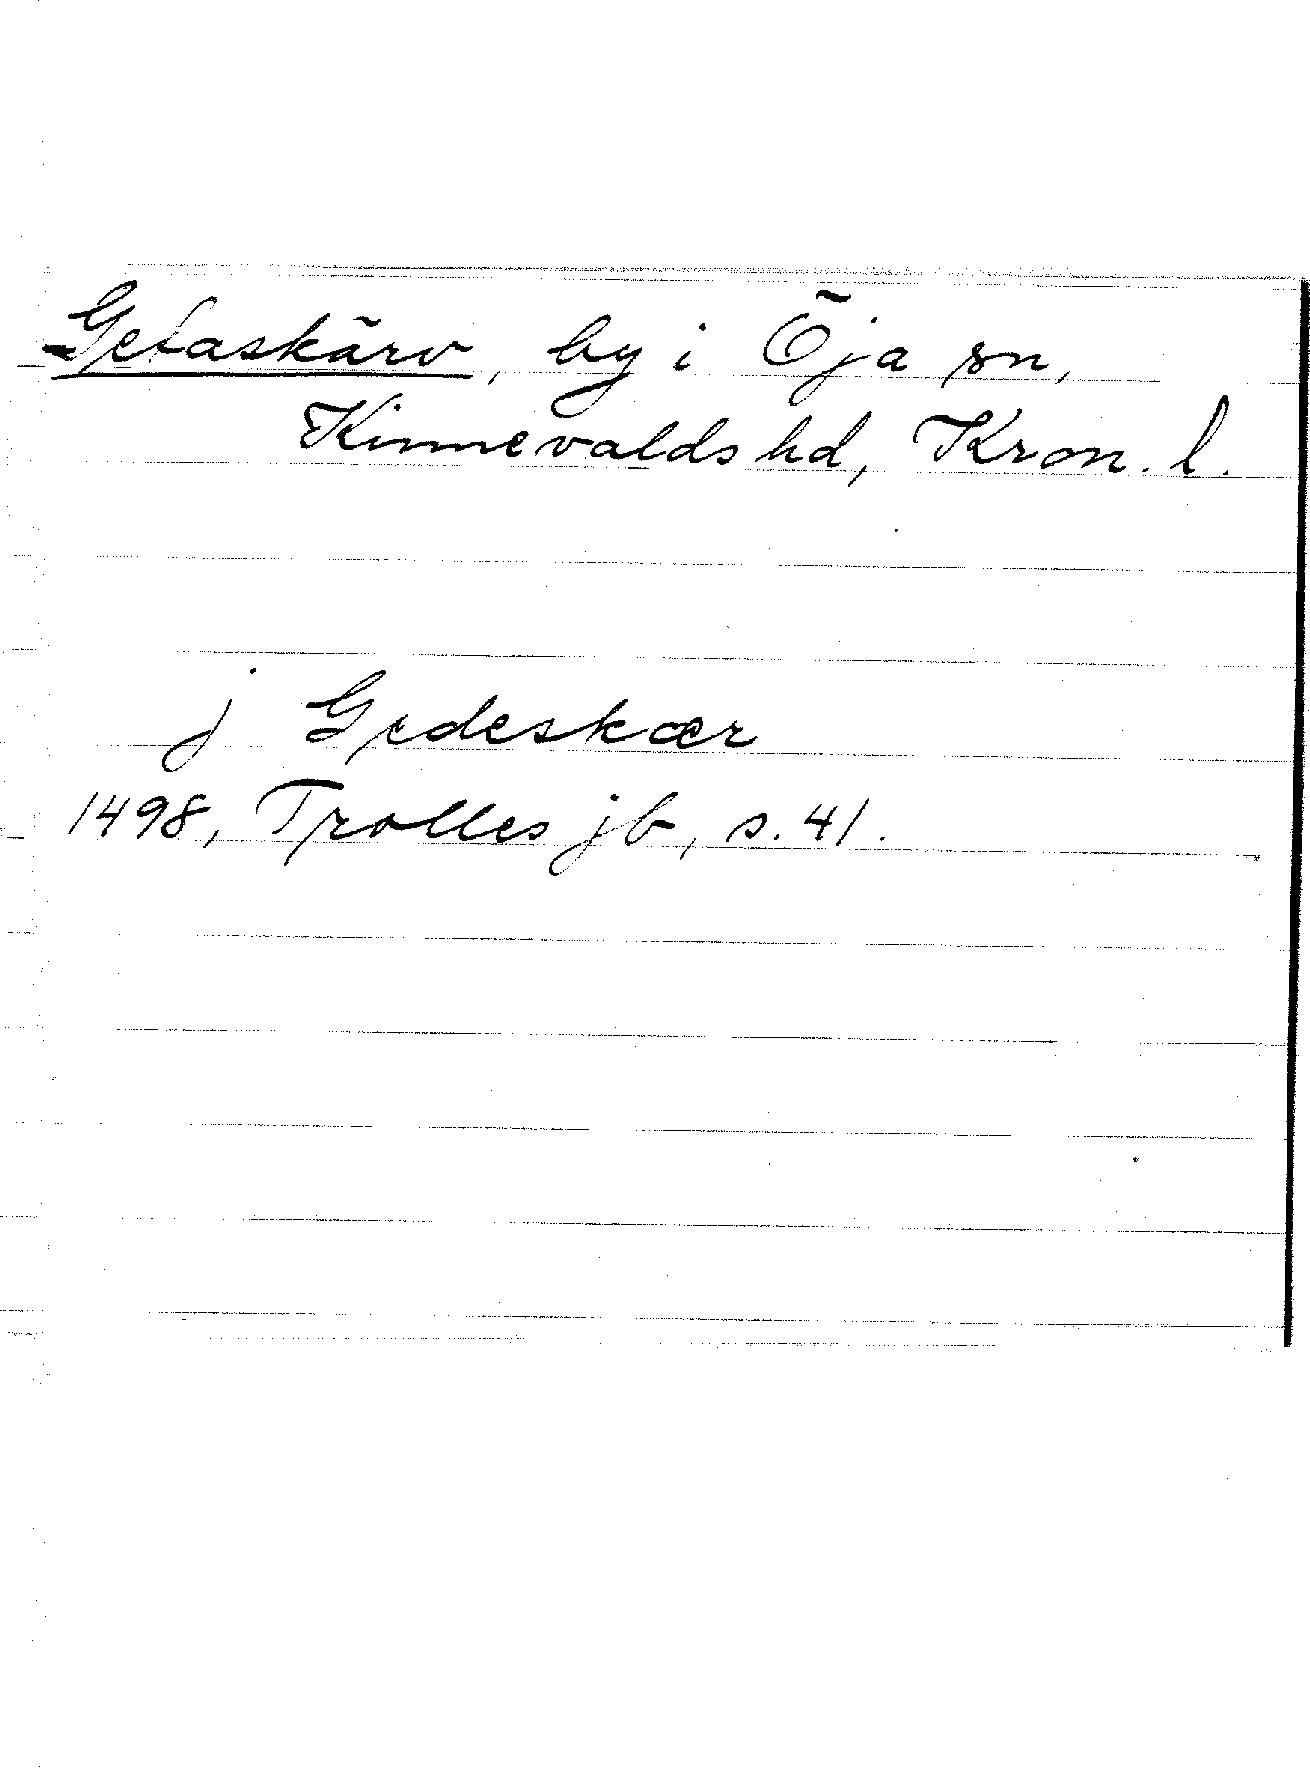 Getaskärv, by i Öja sn,
Kinnevalds hd, Kron. l.
j Gedeskær
1498, Trolles jb, s. 41.